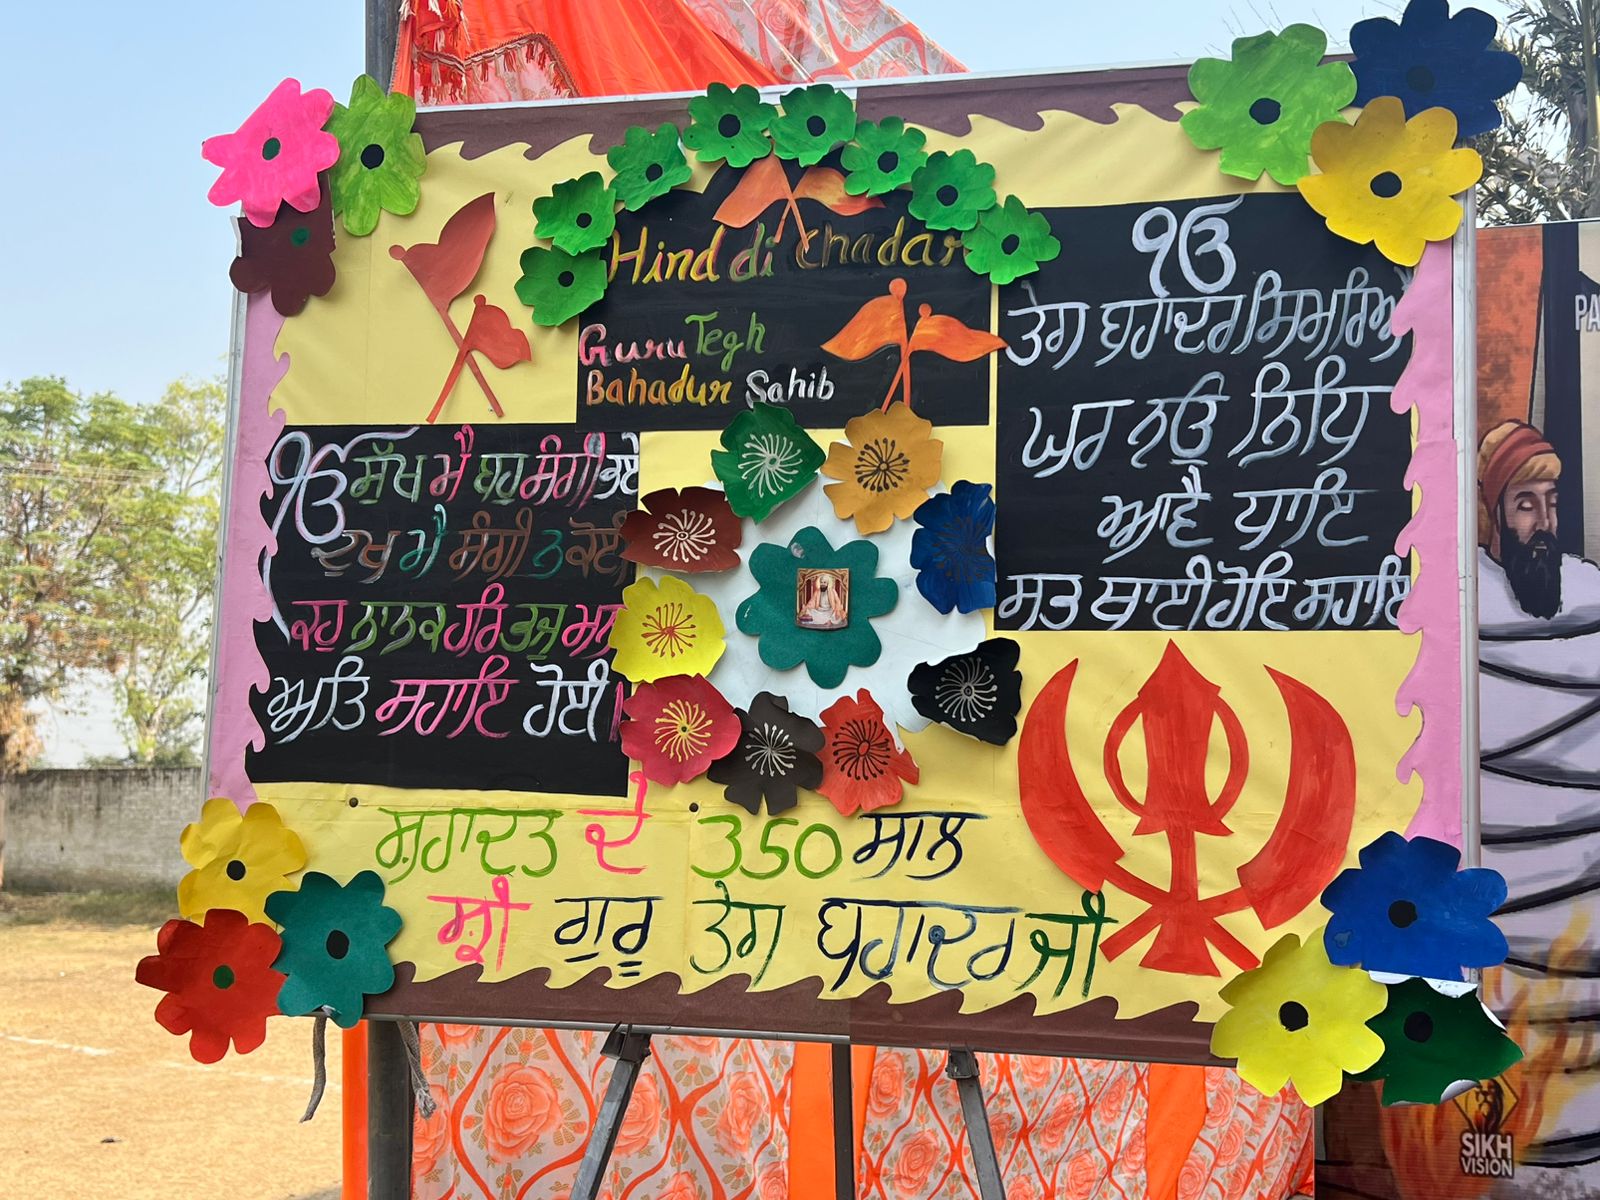 Hind di Chadar
Guru Tegh
Bahadur Sahib
ੴ
ਤੇਗ ਬਹਾਦਰ ਸਿਮਰਿਐ
ਘਰ ਨਉ ਨਿਧਿ
ਆਵੈ ਧਾਇ
ਸਭ ਥਾਈ ਹੋਇ ਸਹਾਇ
ੴ ਸੁੱਖ ਮੈ ਬਹੁ ਸੰਗੀ ਭਏ
ਦੁਖ ਮੈ ਸੰਗੀ ਨ ਕੋਈ
ਕਹੁ ਨਾਨਕ ਹਰਿ ਭਜੁ ਮਨਾ
ਅਤਿ ਸਹਾਇ ਹੋਈ ।
ਸ਼ਹਾਦਤ ਦੇ 350 ਸਾਲ
ਸ੍ਰੀ ਗੁਰੂ ਤੇਗ ਬਹਾਦਰ ਜੀ
PA
SIKH
VISION